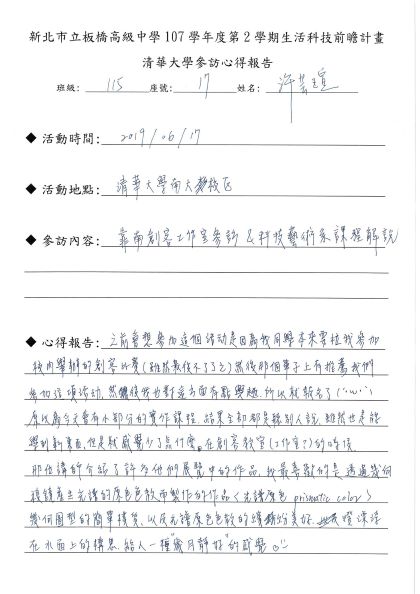 新北市立板橋高級中學 107 學年度第 2 學期生活科技前瞻計畫
清華大學參訪心得報告
班級: 115 座號: 17 姓名: 許芸瑄
◆ 活動時間: 2019/06/17
◆ 活動地點: 清華大學南大校區
◆ 參訪內容: 靠南創客工作室參訪 & 科技藝術系課程解說
◆ 心得報告: 之前會想參加這個活動是因為我同學本來要拉我參加
校內舉辦的創客比賽(雖然最後不了了之)然後那個單子上有推薦我們
參加這項活動,然後我也對這方面有點興趣,所以就報名了(´･ω･`)
原以為今天會有小部分的實作課程,結果全部都是聽別人說,雖然也是能
學到新東西,但是就感覺少了點什麼。在創客教室(工作室?)的時候
那位講師介紹了許多他們展覽中的作品,我最喜歡的是透過幾何
稜鏡產生光譜的原色色散而製作的作品<光譜原色 prismatic color>
幾何圖型的簡單樸實,以及光譜原色色散的繽紛美好,
在水面上的構思,給人一種"歲月靜好"的感覺